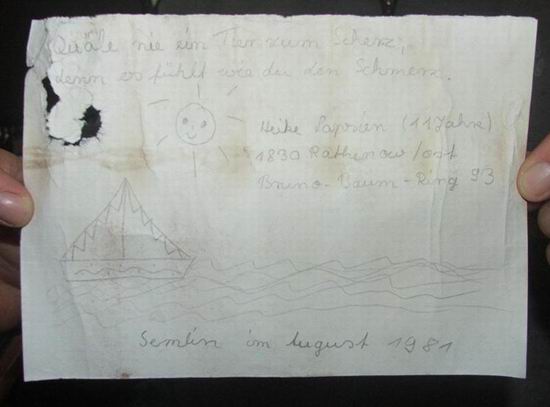 Quäle nie ein Tier zum Scherz,
denn es fühlt wie du den Schmerz.
Heike Papsien (11 Jahre)
1830 Rathenow/ost
Bruno-Baum-Ring 93
Semlin im August 1981